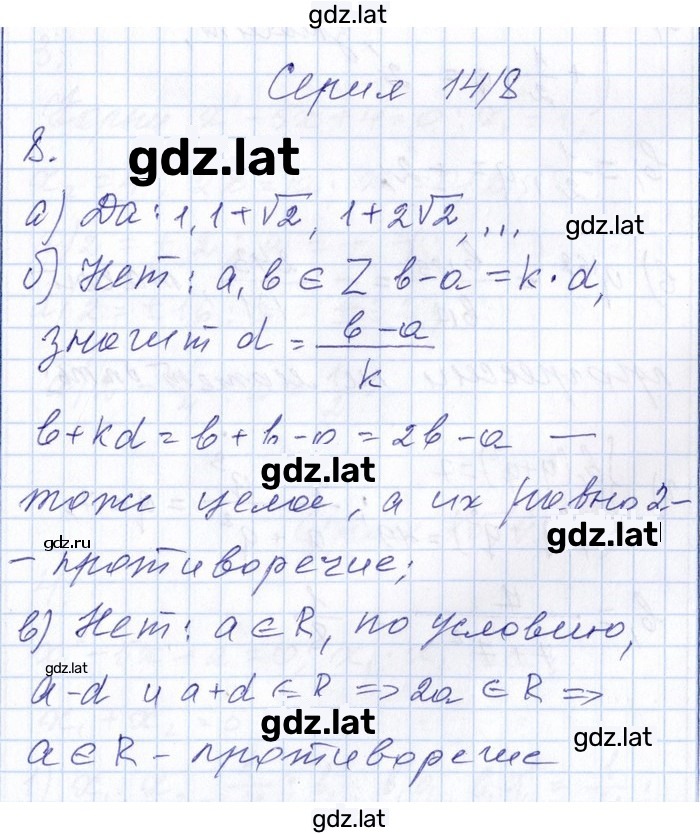 gdz.lat
Серия 14/8
8.
gdz.lat
а) Да: 1, 1+√2, 1+2√2, ...
gdz.lat
б) Нет: a, b ∈ Z b-a = k·d,
значит d = (b-a)/k
b+kd = b+b-a = 2b-a —
gdz.lat
тоже целое, а их ровно 2-
gdz.ru
gdz.lat
- противоречие;
в) Нет: a ∈ R, по условию,
gdz.lat
a-d и a+d ∈ R => 2a ∈ R =>
gdz.lat
gdz.lat
a ∈ R - противоречие
gdz.lat